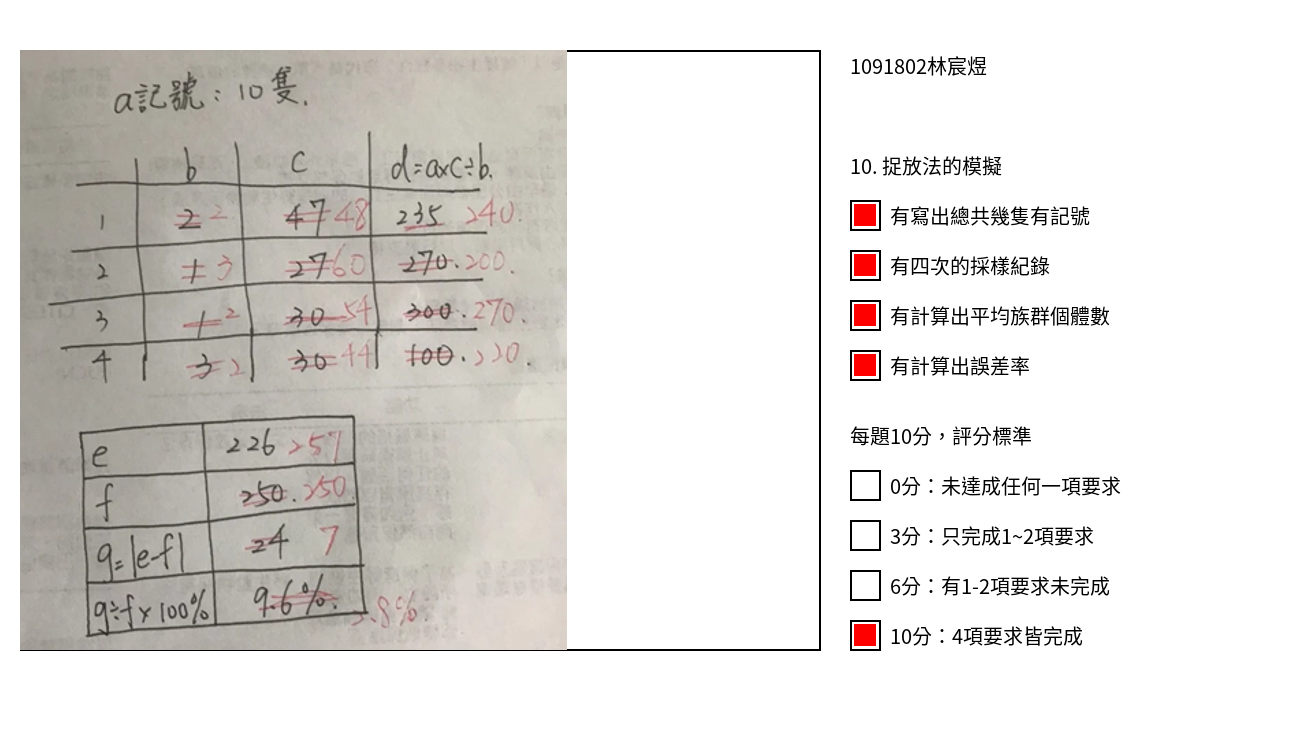 a記號：10隻.
b c d=a×c÷b.
1 2 2 47 48 235 240.
2 1 3 27 60 270. 200.
3 1 2 30 54 300. 270.
4 3 2 30 44 100. 220.
e 226 257
f 250. 250
g=|e-f| 24 7
g÷f×100% 9.6%. 2.8%.
1091802林宸煜
10. 捉放法的模擬
有寫出總共幾隻有記號
有四次的採樣紀錄
有計算出平均族群個體數
有計算出誤差率
每題10分，評分標準
0分：未達成任何一項要求
3分：只完成1~2項要求
6分：有1-2項要求未完成
10分：4項要求皆完成